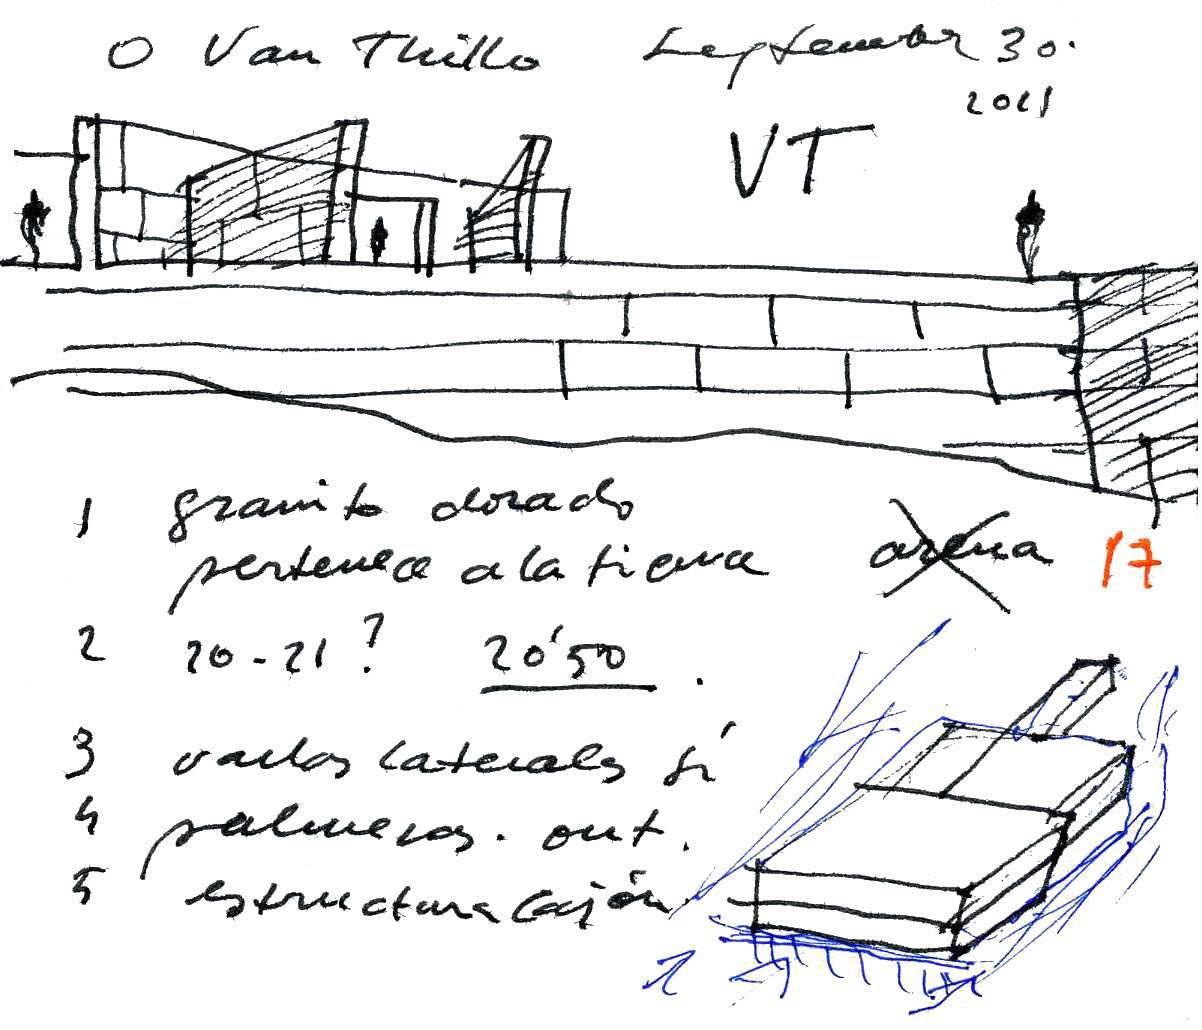 O Van Thillo September 30.
2021
VT
1 granito dorado
pertenece a la tierra arena 17
2 20-21? 20'50.
3 vuelos laterales sí
4 palmeras. out.
5 estructura cajón